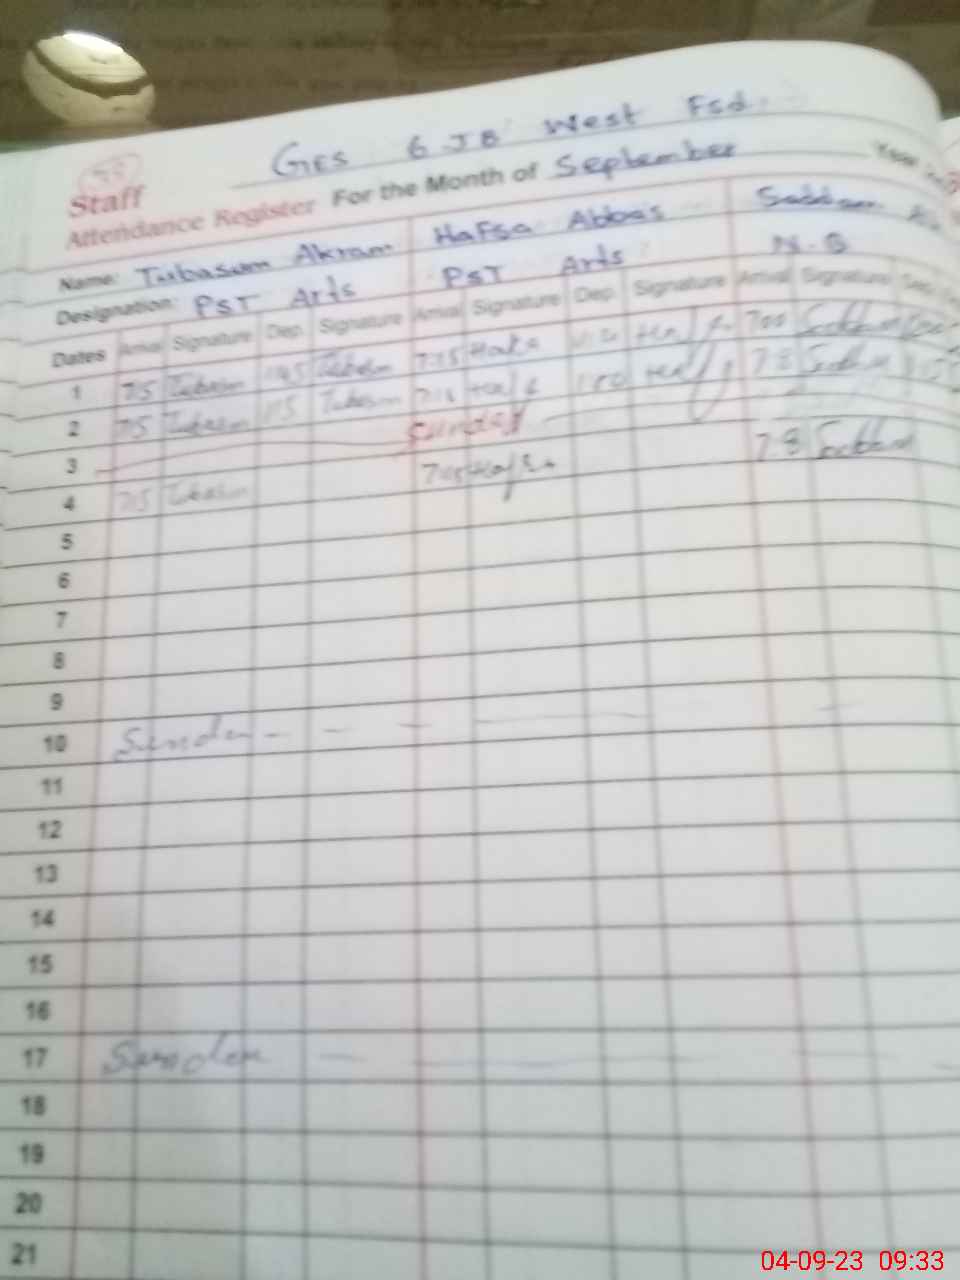 GES 6 JB West Fsd.
Staff
Attendance Register For the Month of September Year
Name: Tubasum Akram Hafsa Abbas Saddam
Designation: PST Arts PST Arts N.Q
Dates Arrival Signature Dep. Signature Arrival Signature Dep. Signature Arrival Signature Dep.
1 7:5 Tubasum 1:45 Tubasum 7:15 Hafsa Hafsa 7:00 Saddam
2 7:5 Tubasum Tubasum Hafsa Hafsa 7:8 Saddam
3 Sunday
4 7:5 Tubasum 7:15 Hafsa 7:8 Saddam
5
6
7
8
9
10 Sunday
11
12
13
14
15
16
17 Sunday
18
19
20
21
04-09-23 09:33